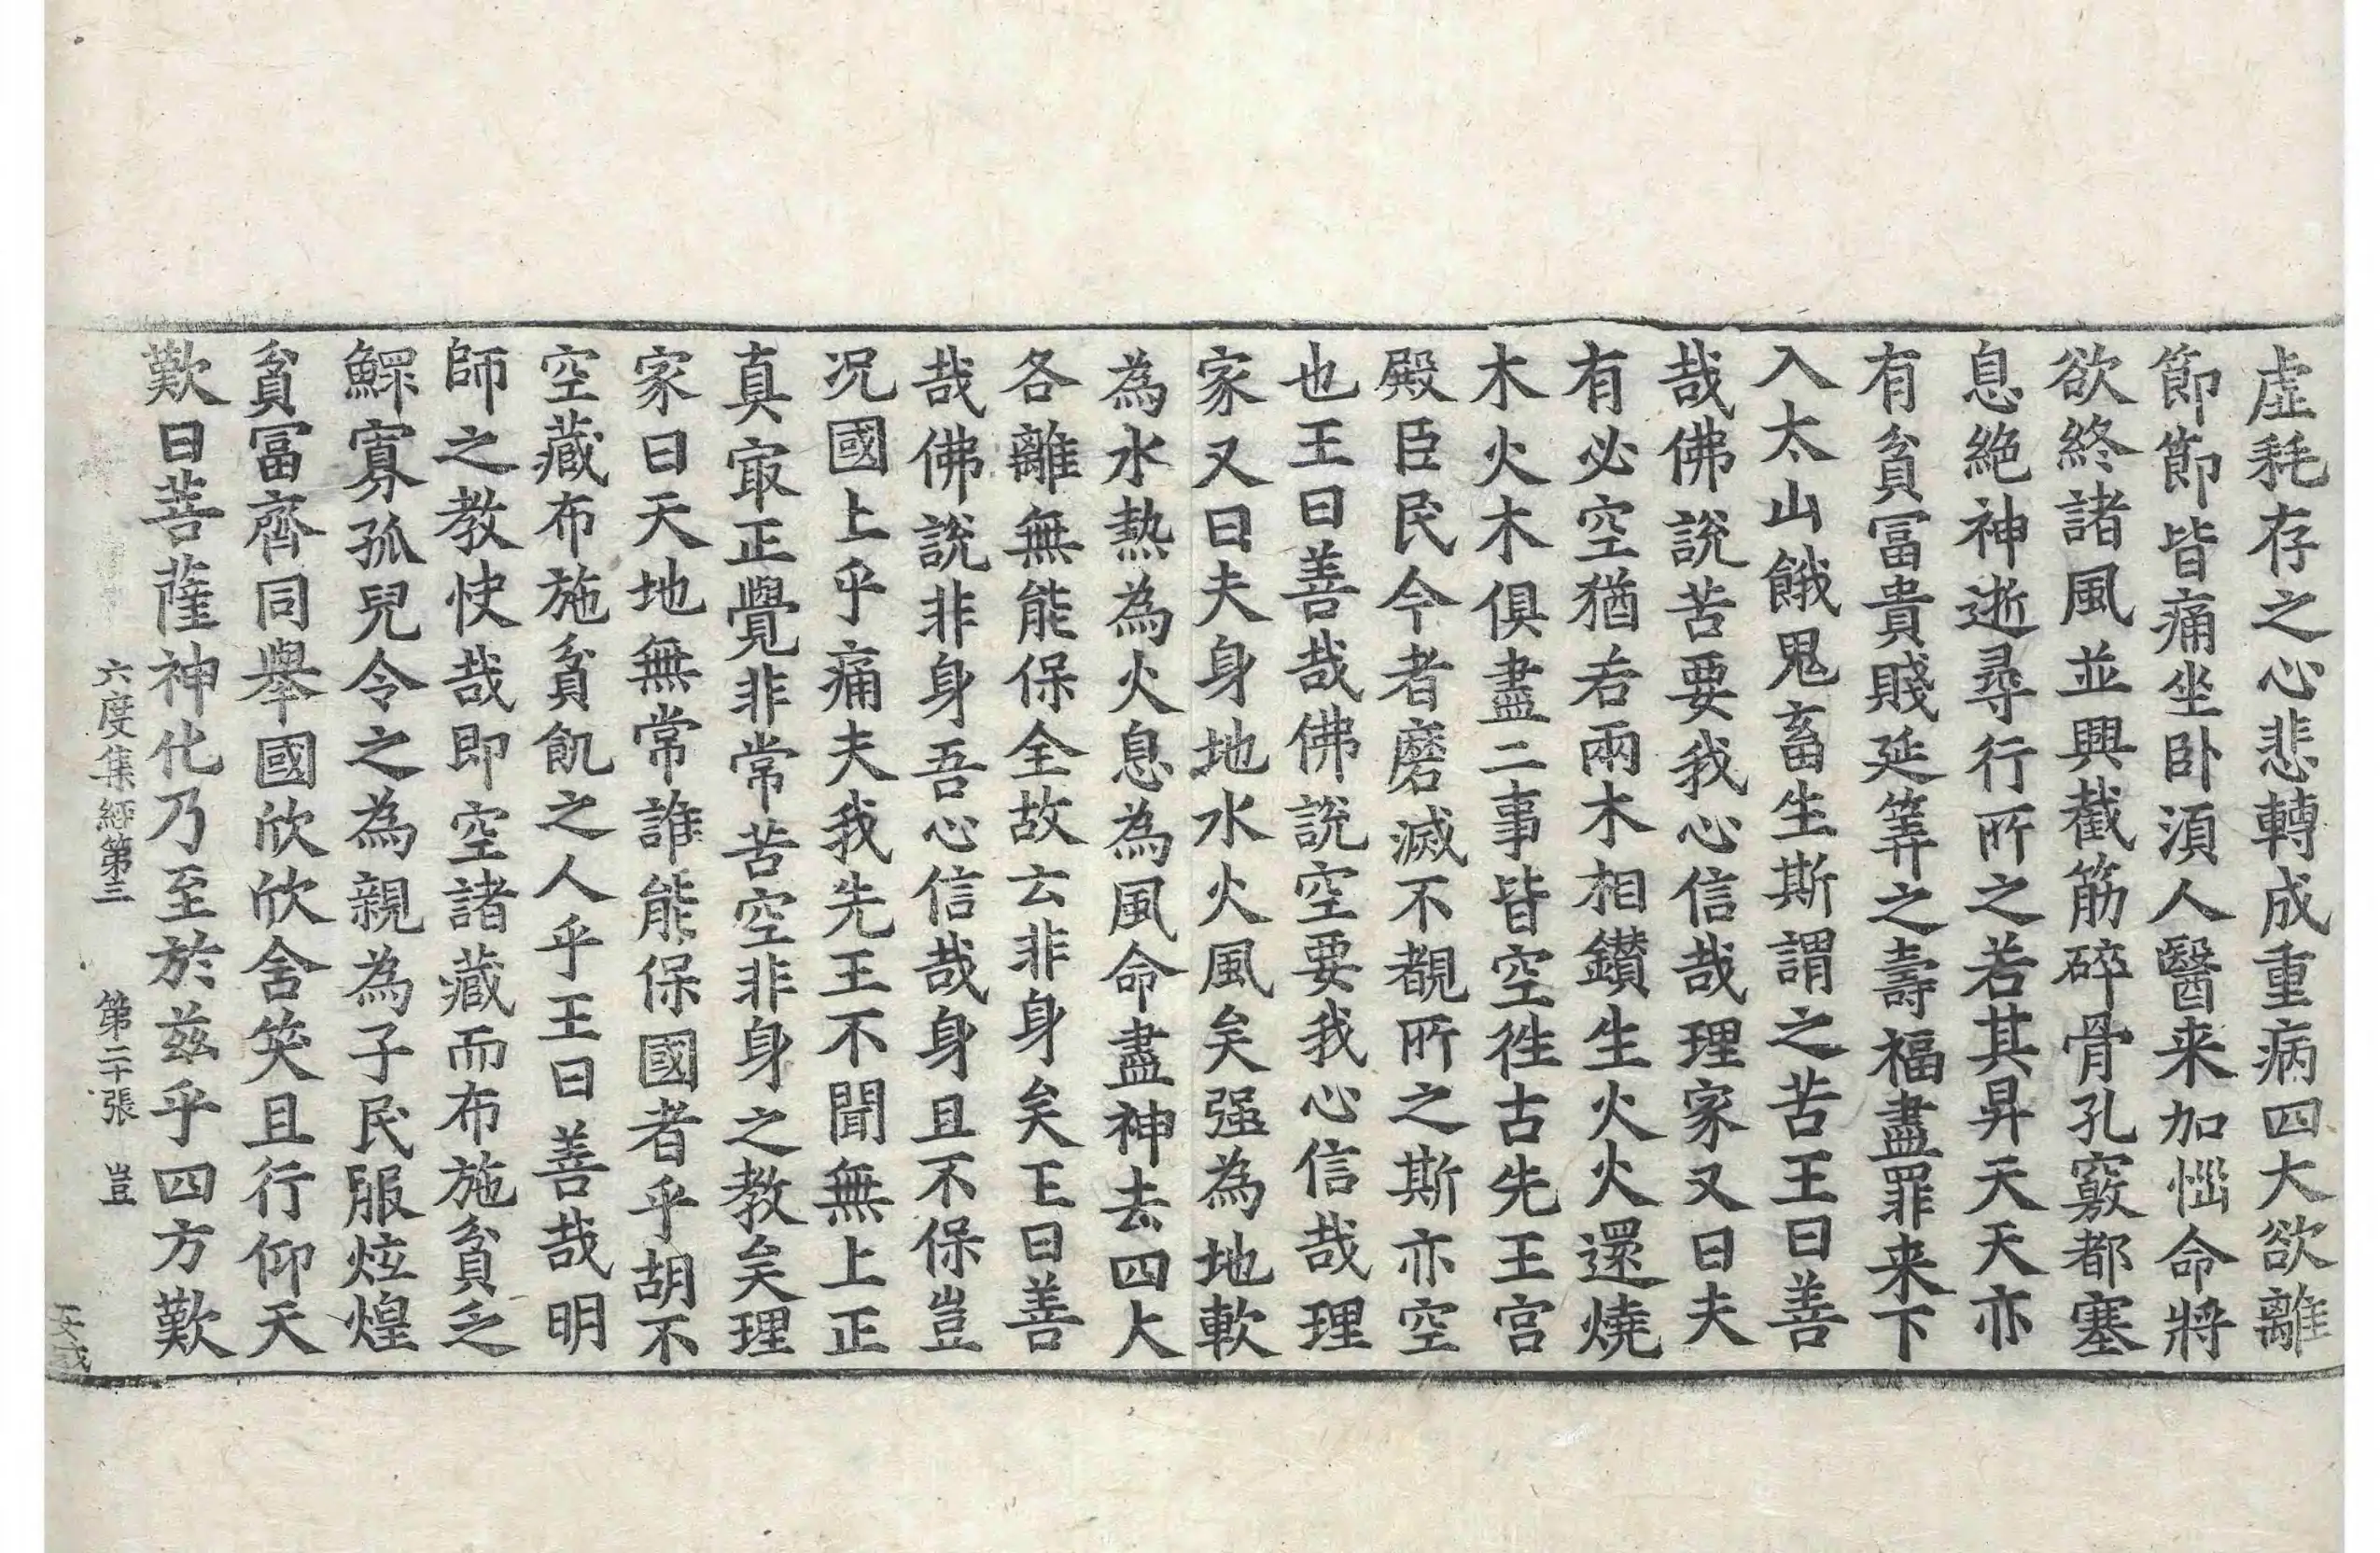 虛耗存之心悲轉成重病四大欲離
節節皆痛坐卧湏人醫来加惱命將
欲終諸風並興截筋碎骨孔竅都塞
息絶神逝尋行所之若其昇天天亦
有貧冨貴賤延筭之壽福盡罪来下
入太山餓鬼畜生斯謂之苦王曰善
哉佛說苦要我心信哉理家又曰夫
有必空猶若兩木相鑚生火火還燒
木火木俱盡二事皆空徃古先王宮
殿臣民今者磨滅不覩所之斯亦空
也王曰善哉佛說空要我心信哉理
家又曰夫身地水火風矣强為地軟
為水熱為火息為風命盡神去四大
各離無能保全故云非身矣王曰善
哉佛說非身吾心信哉身且不保豈
况國土乎痛夫我先王不聞無上正
真㝡正覺非常苦空非身之教矣理
家曰天地無常誰能保國者乎胡不
空藏布施貧飢之人乎王曰善哉明
師之教快哉即空諸藏而布施貧乏
鰥寡孤兒令之為親為子民服炫煌
貧冨齊同舉國欣欣含笑且行仰天
歎曰菩薩神化乃至於兹乎四方歎
六度集經第三 第二十張 豈